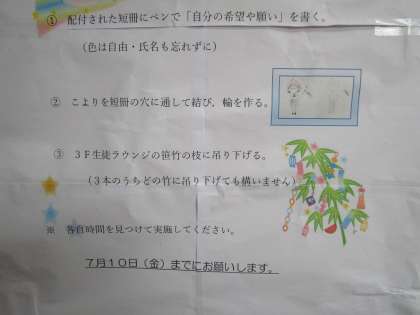 ① 配付された短冊にペンで「自分の希望や願い」を書く。
（色は自由・氏名も忘れずに）
② こよりを短冊の穴に通して結び、輪を作る。
③ ３Ｆ生徒ラウンジの笹竹の枝に吊り下げる。
（３本のうちどの竹に吊り下げても構いません）
※ 各自時間を見つけて実施してください。
７月１０日（金）までにお願いします。